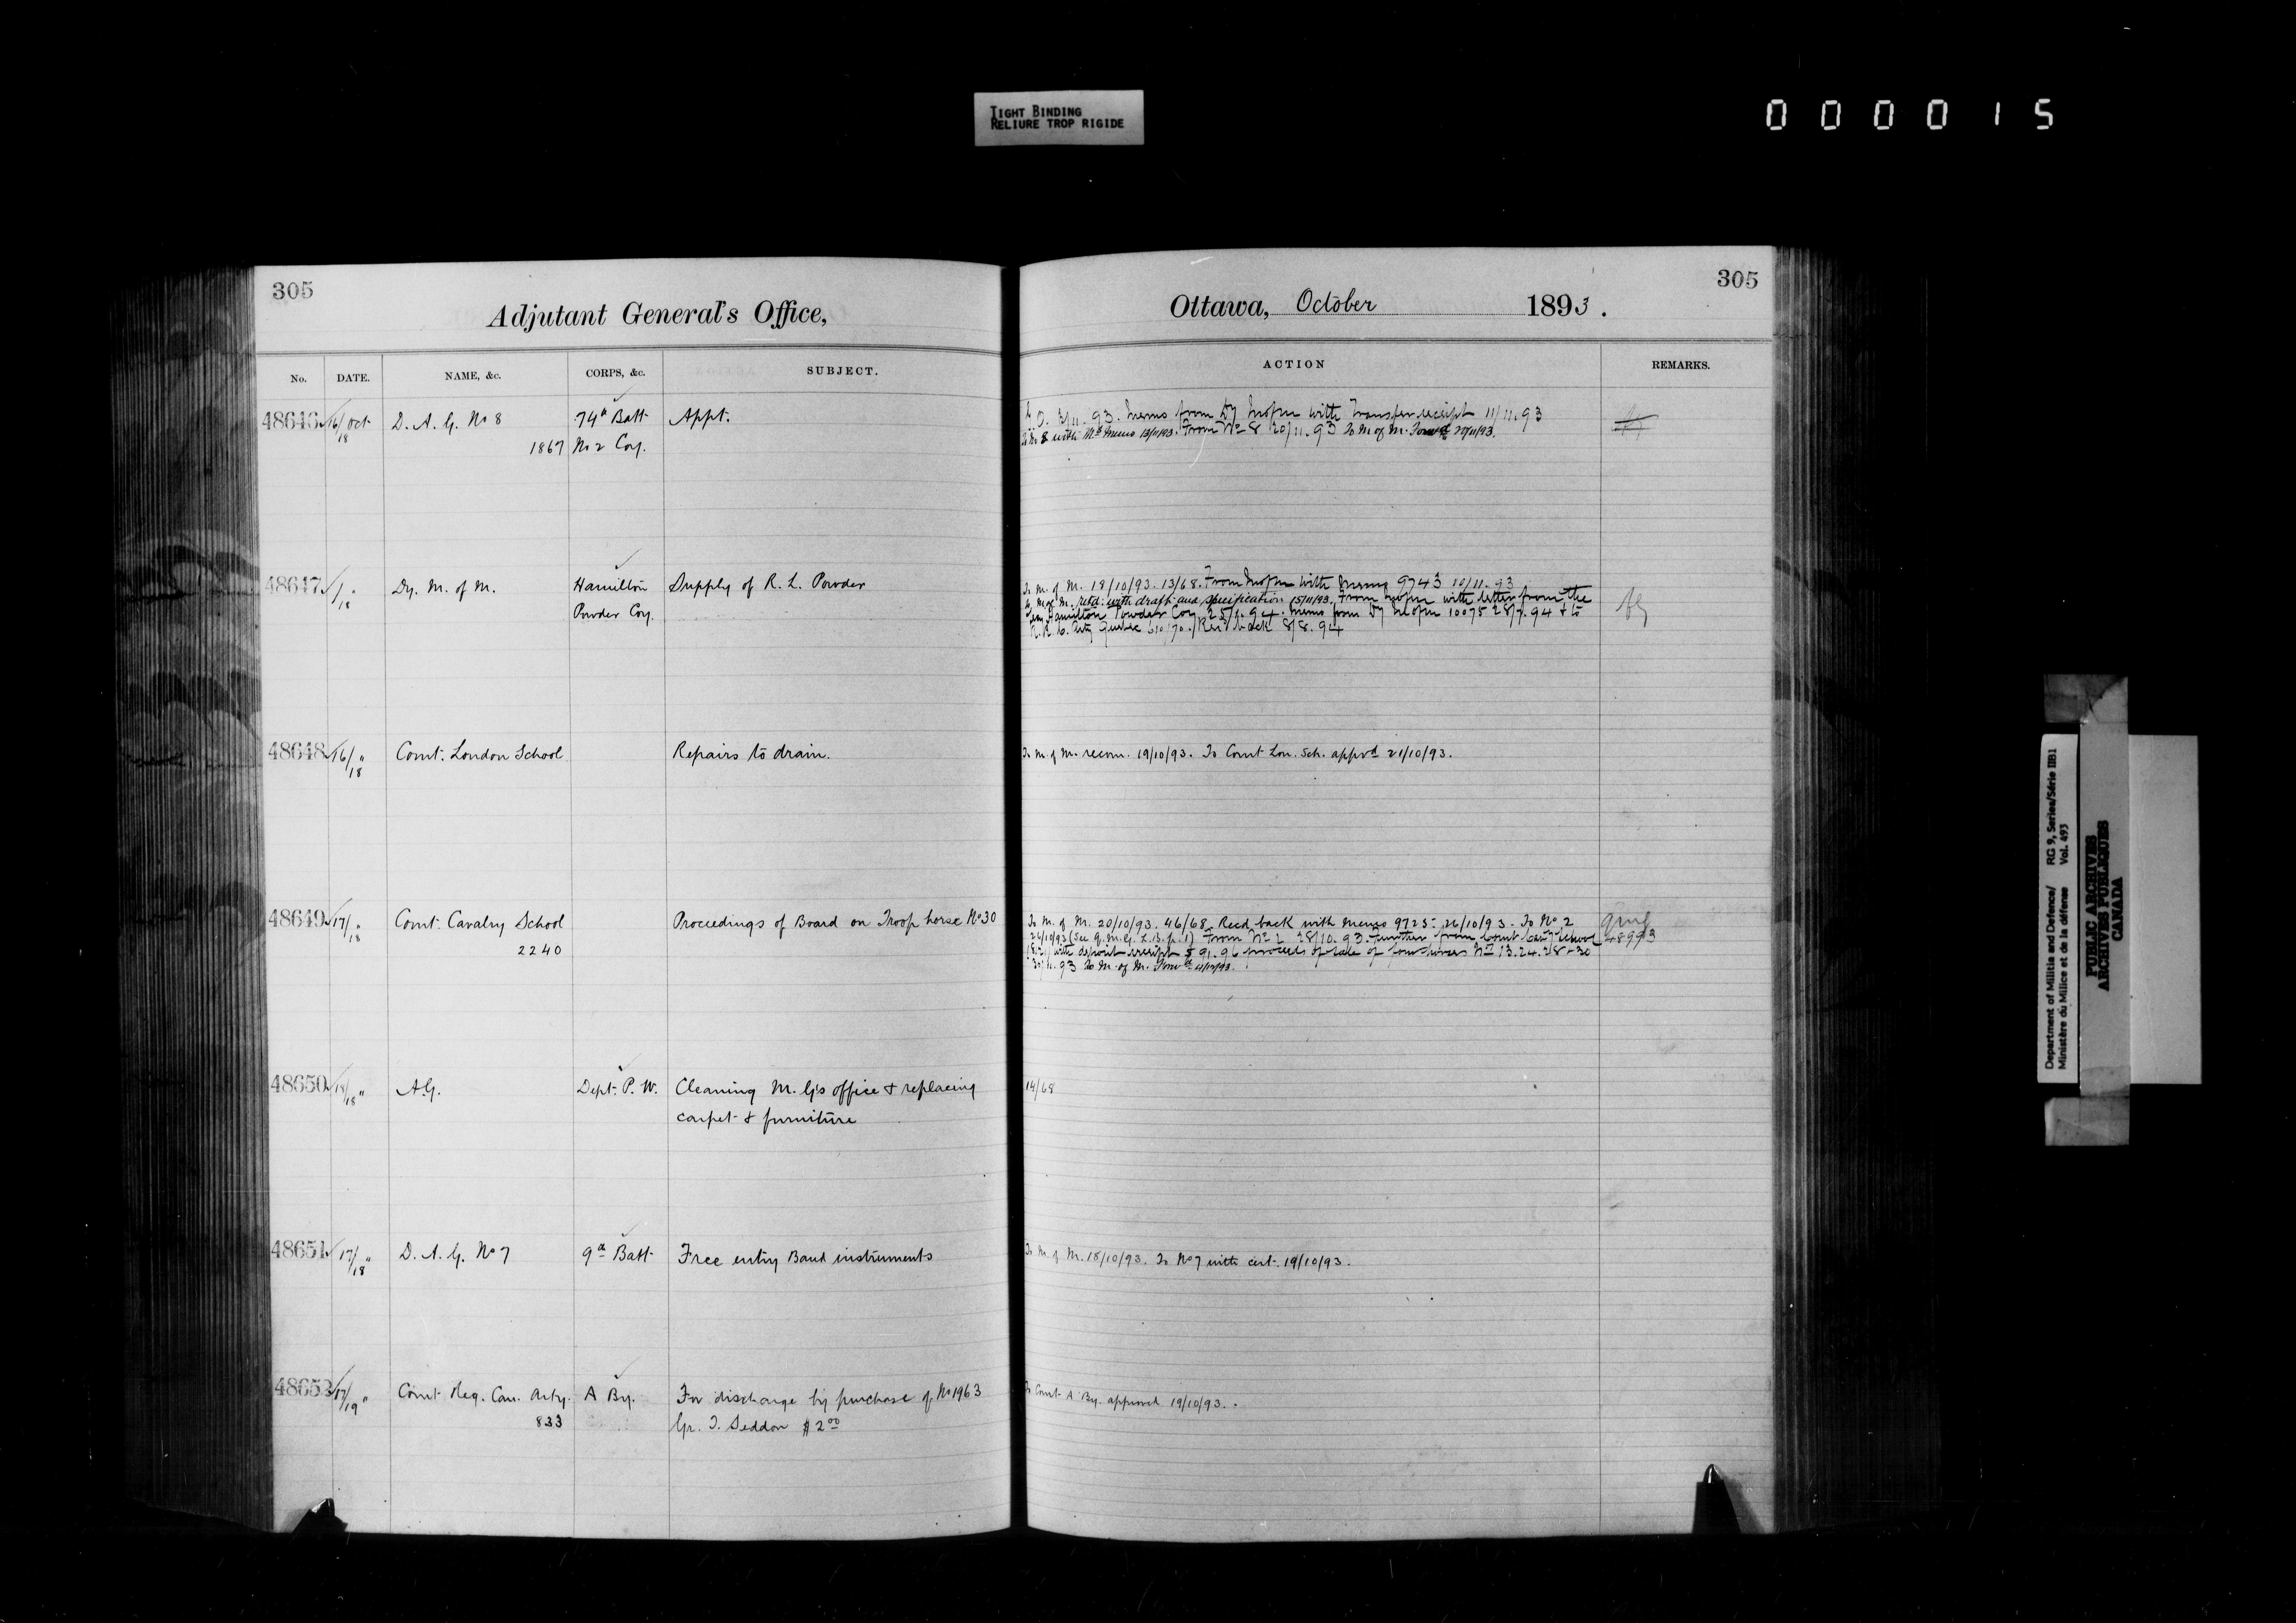 TIGHT BINDING
RELIURE TROP RIGIDE
000015
305
Adjutant General's Office,
No. DATE. NAME, &c. CORPS, &c. SUBJECT.
48646 16/18 Oct D. A. G. No 8 74th Batt Appt.
1867 No 2 Coy.
48647 /18 " Dy. M. of M. Hamilton Supply of R. L. Powder
Powder Coy.
48648 16/18 " Comt. London School Repairs to drain.
48649 17/18 " Comt. Cavalry School Proceedings of Board on Troop horse No 30
2240
48650 18/18 " A.G. Dept. P. W. Cleaning M. G's office & replacing
carpet & furniture
48651 17/18 " D. A. G. No 7 9th Batt Free entry Band instruments
48652 17/19 " Comt Reg. Can. Arty. A By. For discharge by purchase of No 1963
833 Gr. T. Seddon $2.00
305
Ottawa, October 1893.
ACTION REMARKS.
O. 3/11.93. Memo from Dy with Transfer receipt 11/11.93
To No 8 with Memo 13/11/93 From No 8 20/11.93 To M of M. Forwd
To M. of M. 18/10/93. 13/68. From with memo 9743 10/11.93
M of M. retd. with draft and specification 15/11/93. From with letter from the
Hamilton Powder Coy 25/1.94. Memo from Dy 10075 28/7.94 & to
City Quebec 610/70. / Recd back 8/8.94
To M. of M. recom. 19/10/93. To Comt Lon. Sch. appvd 21/10/93.
To M. of M. 20/10/93. 46/68. Recd back with memo 9725. 26/10/93. To No 2 qmg
26/10/93 (See Q.M.G. L.B. p. 1) From No 2 28/10.93. Further from Comt Cavy School 48993
with deposit receipt $91.96 proceeds of sale of four horses Nos 13.24.28 & 30
30/11.93 To M. of M. Forwd
14/68
To M. of M. 18/10/93. To No 7 with cert. 19/10/93.
To Comt A By. approved 19/10/93.
Department of Militia and Defence/ RG 9, Series/Série IIB1
Ministère du Milice et de la défense Vol. 493
PUBLIC ARCHIVES
ARCHIVES PUBLIQUES
CANADA